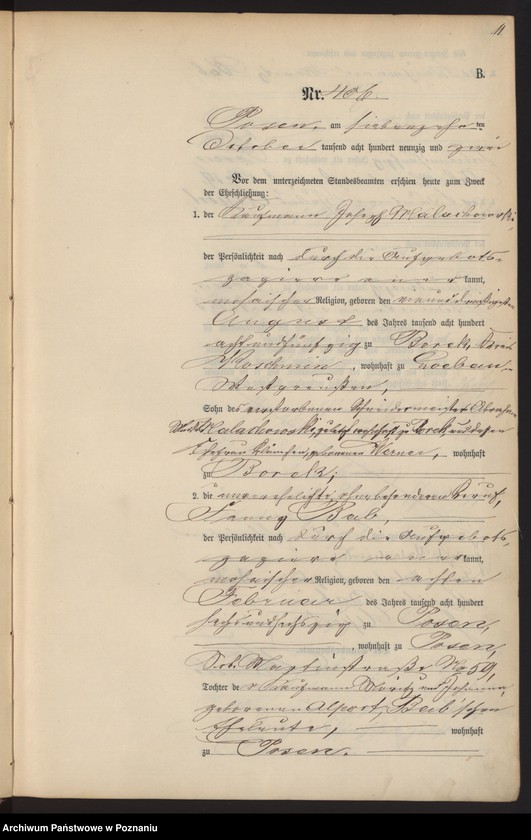 11
B.
Nr. 406.
Posen, am siebenzehnten
October tausend acht hundert neunzig und zwei
Vor dem unterzeichneten Standesbeamten erschien heute zum Zweck
der Eheschließung:
1. der Kaufmann Joseph Malachowski,
der Persönlichkeit nach durch die Aufgebots-
papiere anerkannt,
mosaischer Religion, geboren den
August des Jahres tausend acht hundert
achtundfünfzig zu Borek, Kreis
Koschmin, wohnhaft zu Loebau,
Westpreußen,
Sohn des verstorbenen Schneidermeister Abraham
Malachowski, zuletzt wohnhaft zu Borek, und dessen
Ehefrau geborenen Werner, wohnhaft
zu Borek;
2. die unverehelichte, ohne besonderen Beruf,
Fanny Bab,
der Persönlichkeit nach durch die Aufgebots-
papiere anerkannt,
mosaischer Religion, geboren den achten
Februar des Jahres tausend acht hundert
sechsundsechszig zu Posen,
wohnhaft zu Posen,
Sct. Martinstraße No 59,
Tochter der Kaufmann Moritz und Johanna,
geborenen Alport, Bab'schen
Eheleute, wohnhaft
zu Posen.
Archiwum Państwowe w Poznaniu